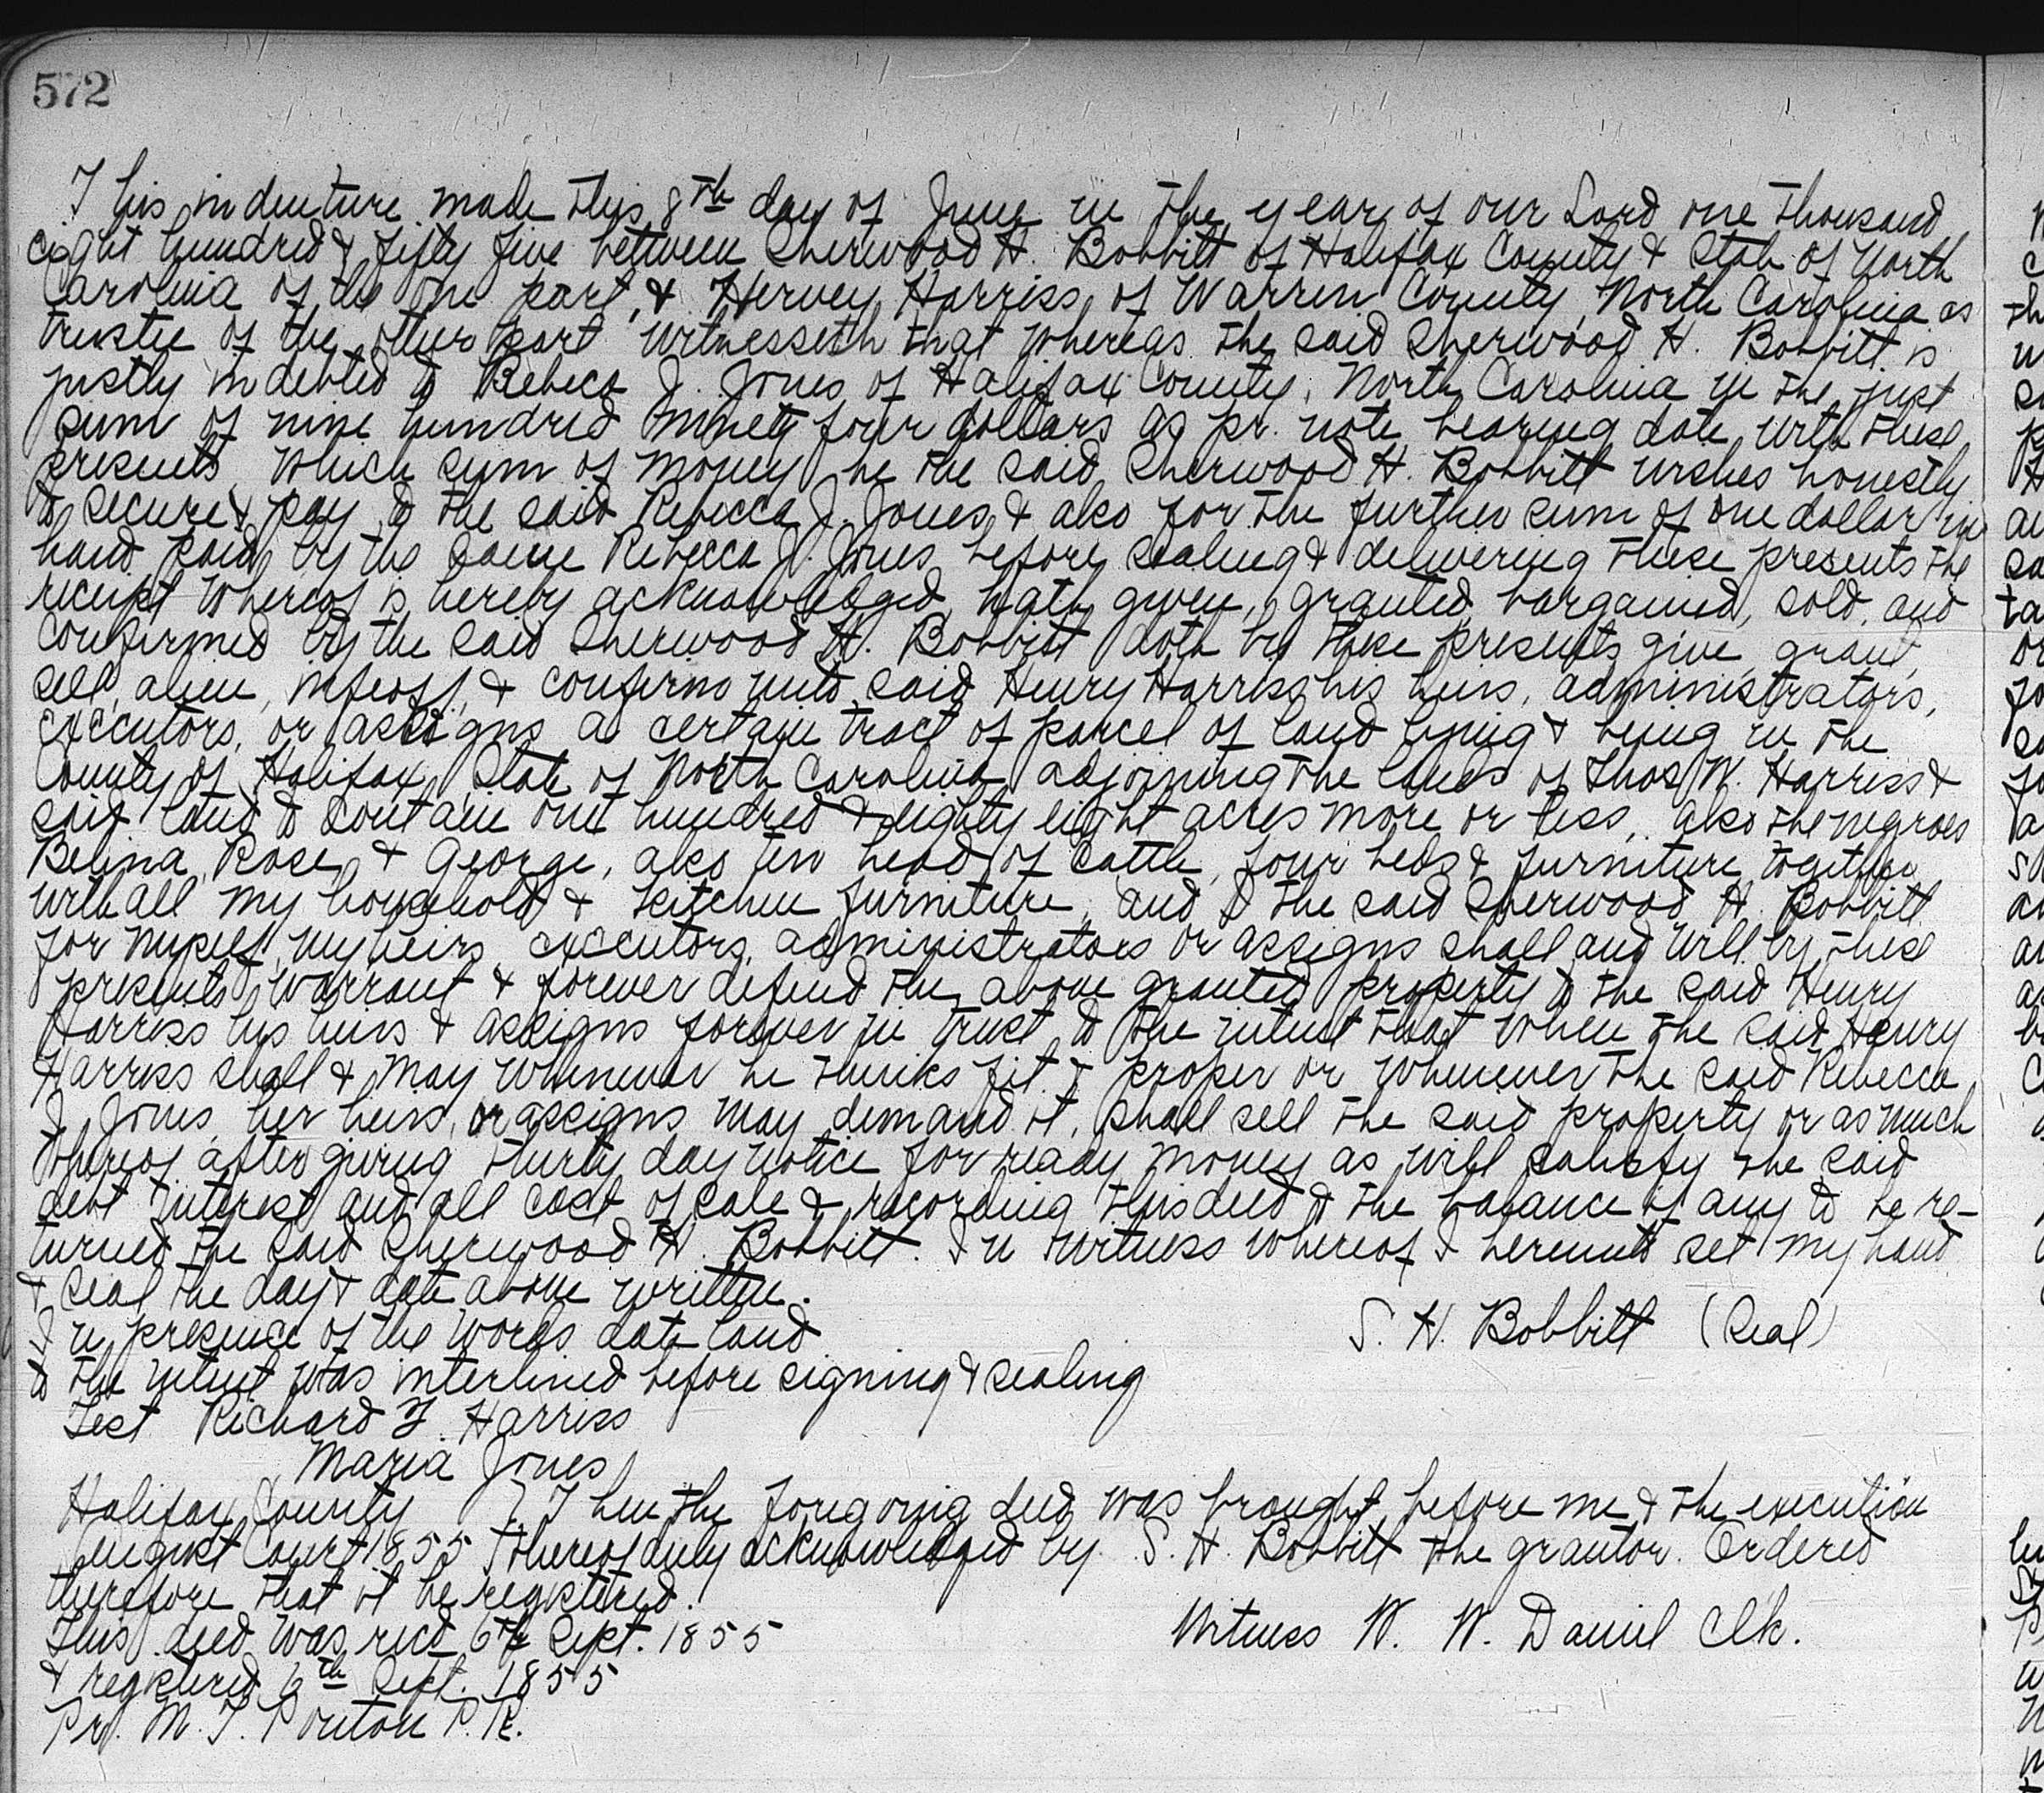 572
This indenture made this 8th day of June in the year of our Lord one thousand
eight hundred & fifty five between Sherwood H. Bobbitt of Halifax County & State of North
Carolina of the one part, & Hervey Harriss, of Warren County, North Carolina as
trustee of the other part witnesseth that whereas the said Sherwood H. Bobbitt is
justly indebted to Rebeca J. Jones of Halifax County, North Carolina in the just
sum of nine hundred ninety four dollars as pr. note bearing date with these
presents, which sum of money he the said Sherwood H. Bobbitt wishes honestly
to secure & pay to the said Rebecca J. Jones & also for the further sum of one dollar in
hand paid by the same Rebecca J. Jones before sealing & delivering these presents the
receipt whereof is hereby acknowledged hath given, granted, bargained, sold, and
confirmed by the said Sherwood H. Bobbitt doth by these presents give, grant,
sell, alien, infeoff, & confirm unto said Henry Harriss his heirs, administrators,
executors, or assigns a certain tract of parcel of land lying & being in the
County of Halifax, State of North Carolina adjoining the lands of Thos W. Harriss &
said land to contain one hundred & eighty eight acres more or less, also the negroes
Belina, Rose, & George, also ten head of cattle, four beds & furniture together
with all my household & kitchen furniture, and I the said Sherwood H. Bobbitt
for myself, my heirs, executors, administrators or assigns shall and will by these
presents warrant & forever defend the above granted property to the said Henry
Harriss his heirs & assigns forever in trust to the intent that when the said Henry
Harriss shall & may whenever he thinks fit & proper or whenever the said Rebecca
J. Jones, her heirs, or assigns may demand it, shall sell the said property or as much
thereof after giving thirty day notice for ready money as will satisfy the said
debt interest and all cost of sale & recording this deed & the balance if any to be re-
turned the said Sherwood H. Bobbitt. In witness whereof I hereunto set my hand
& seal the day & date above written.
In presence of the words date land
S. H. Bobbitt (Seal)
to the intent was interlined before signing & sealing
Test Richard F. Harriss
Maria Jones
Halifax County } Then the foregoing deed was brought before me & the execution
August Court 1855 } thereof duly acknowledged by S. H. Bobbitt the grantor. Ordered
therefore that it be registered.
This deed was recd 6th Sept. 1855
Witness W. W. Daniel Clk.
& registered 6th Sept. 1855
Pr. M. T. Ponton P.R.